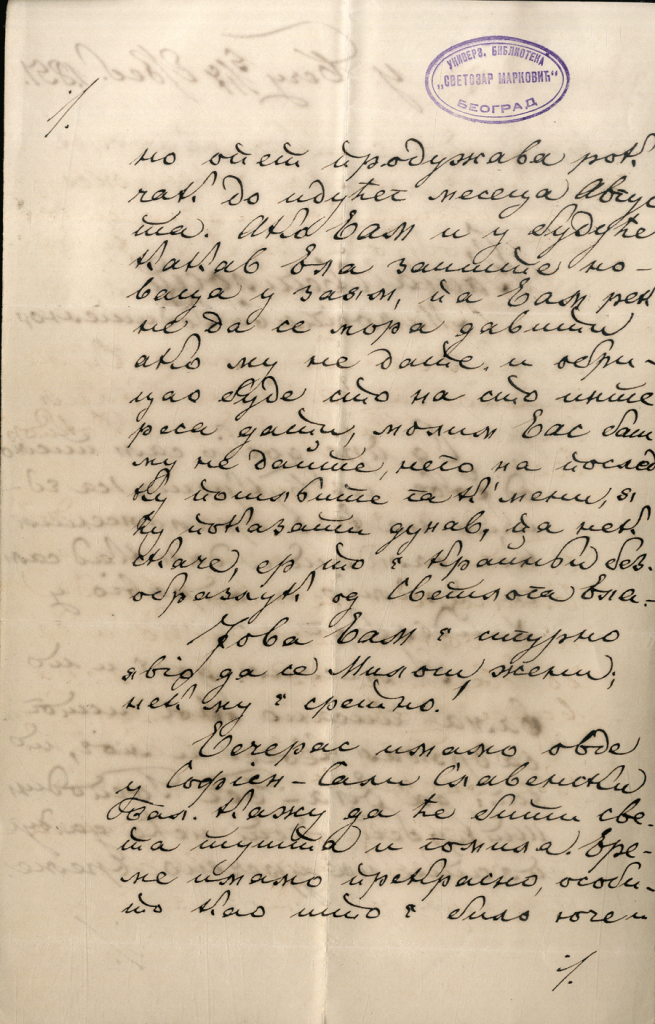 УНИВЕРЗ. БИБЛИОТЕКА
„СВЕТОЗАР МАРКОВИЋ“
БЕОГРАД
·/.
но опет продужава рок
чак до идућег месеца Авгус
та. Ако Вам и у будуће
какав Ела запиште но-
ваца у заям, па Вам рек
не да се мора давити
ако му не дате, и обри-
цао буде сто на сто инте
реса дати, молим Вас баш
му не дайте, него на послед
ку пошлѣте га к' мени, я
ћу показати дунав, па нек
скаче, ер то є крайньи без-
образлук од Светлога Ела.-
Јова Вам є штурно
явіо да се Милош жени;
нек му є сретно!
Вечерас имамо овде
у Софіен-Сали Славенски
Бал. Кажу да ће бити све-
та тушта и томила. Вре-
ме имамо прекрасно, особи-
то као што є било юче и
·/.